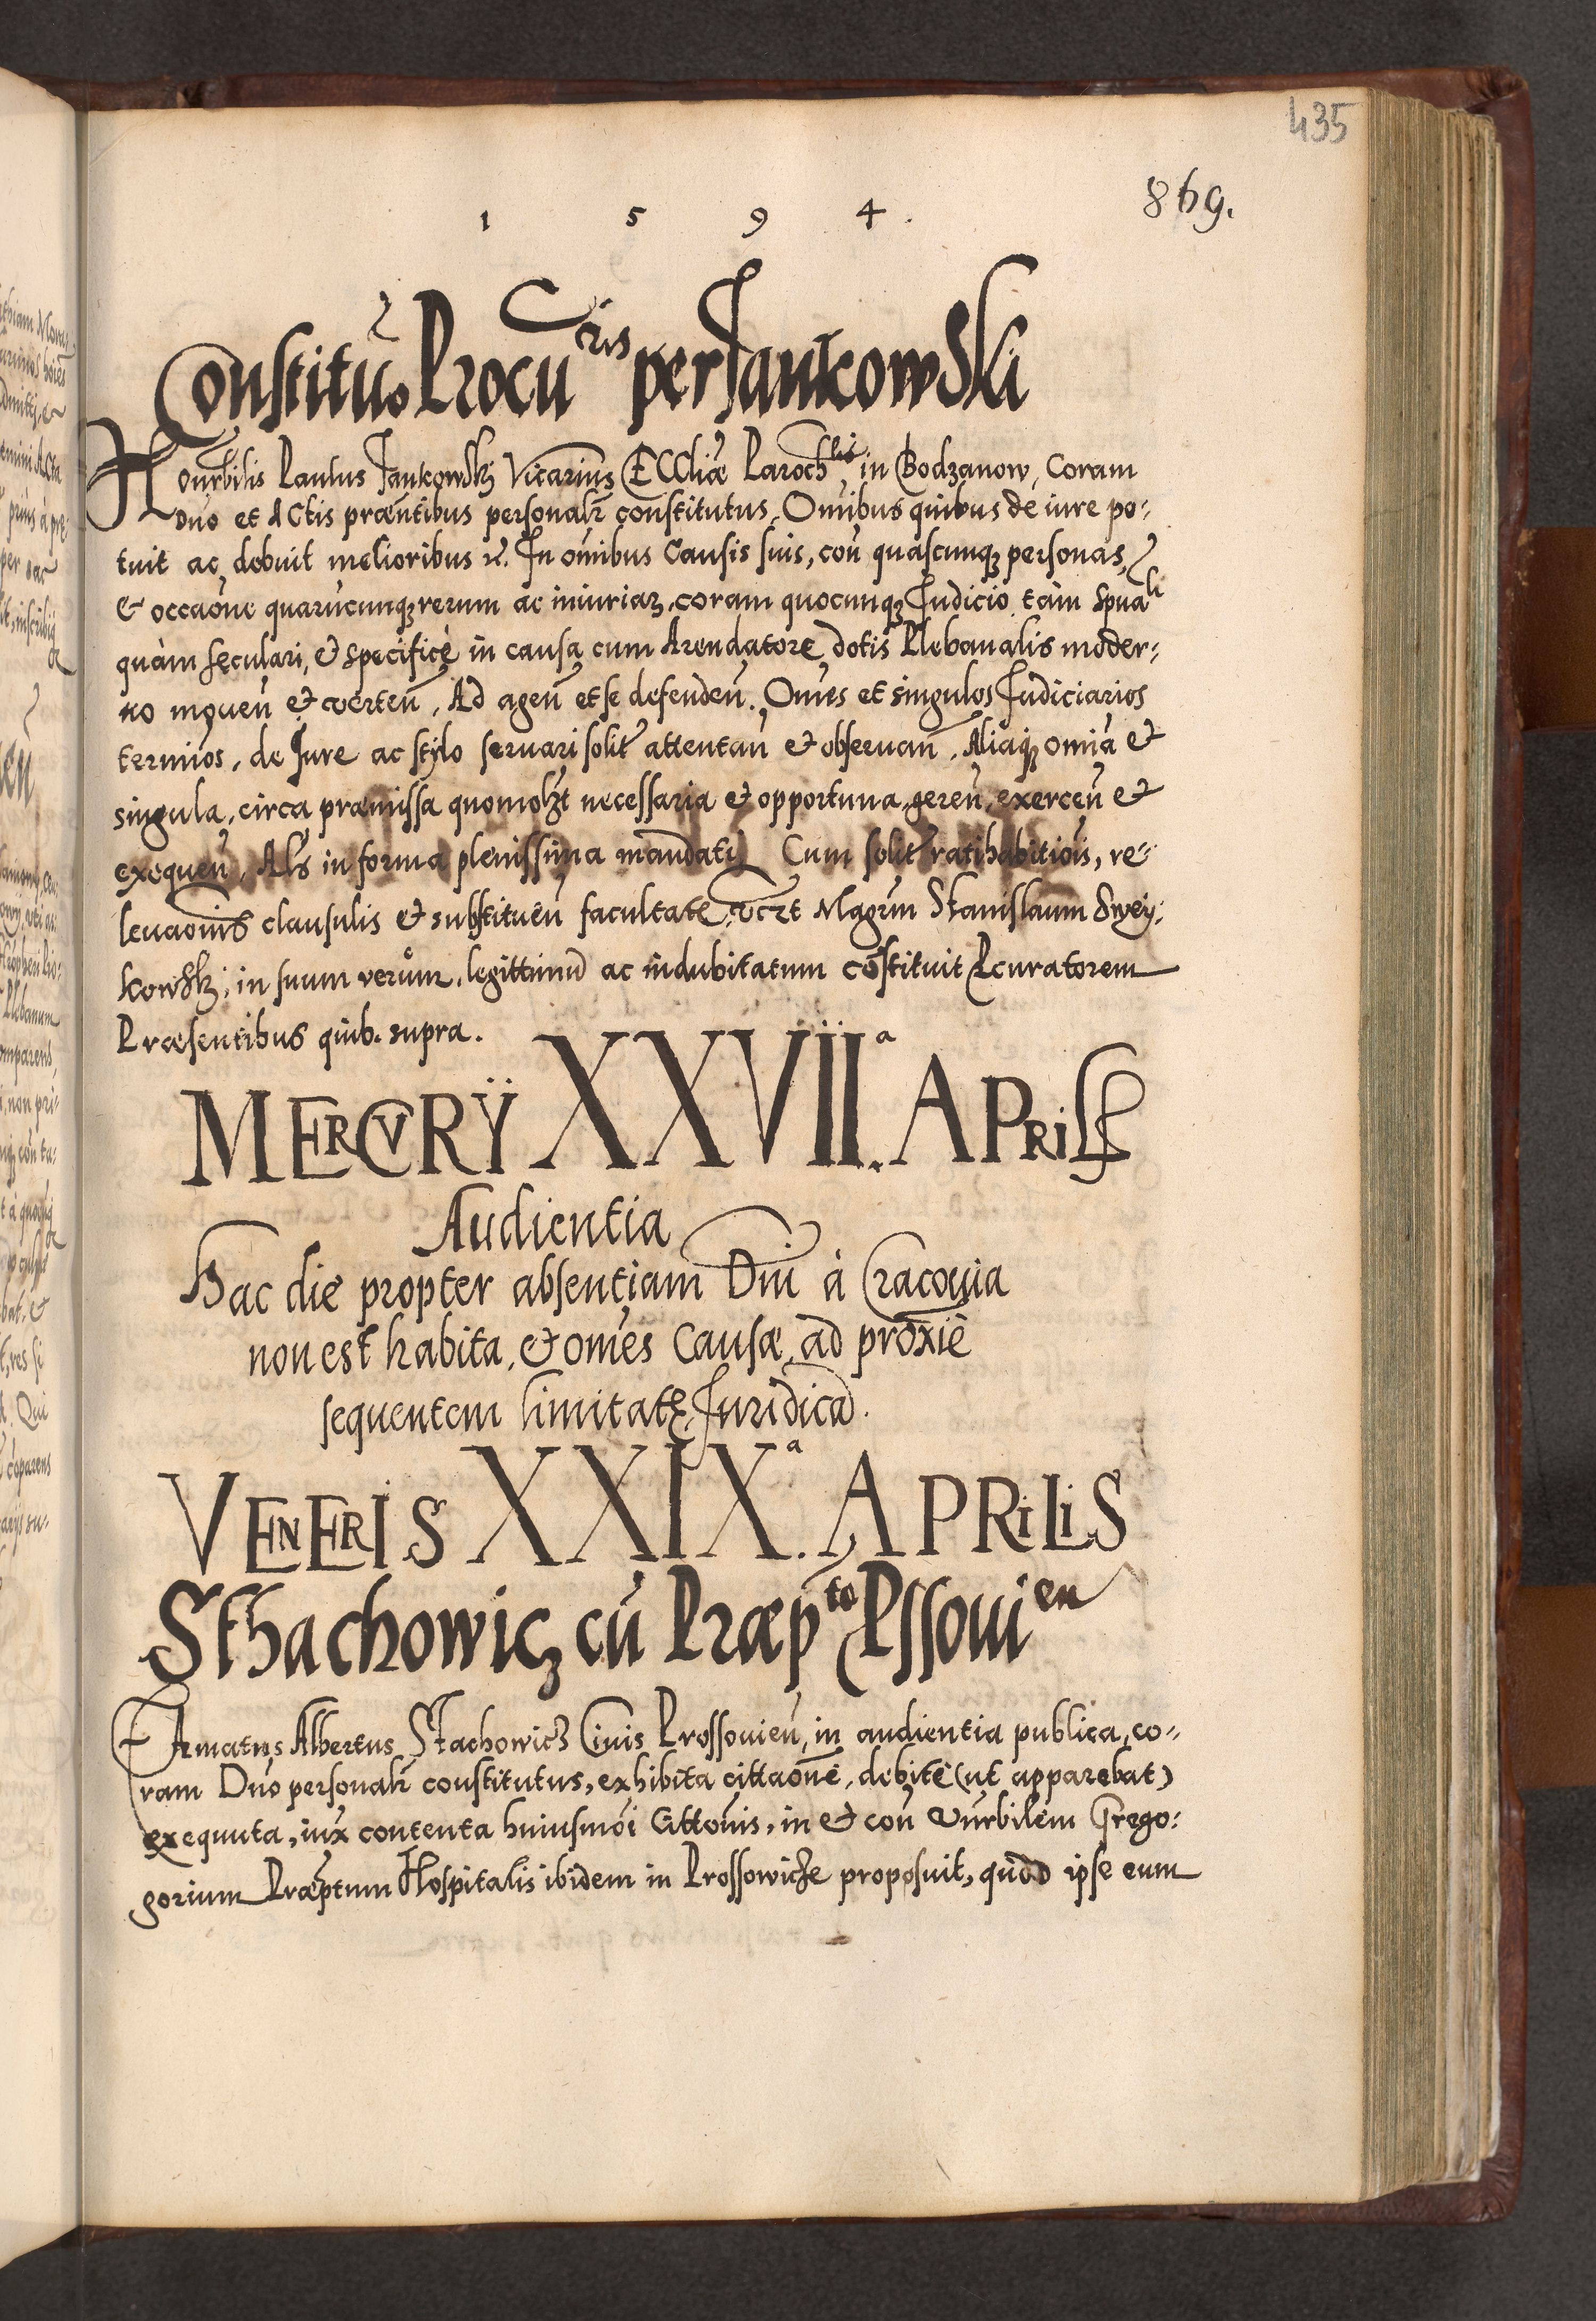 435
869.
1 5 9 4.
Constitũo Procu͠ris per Jankowski
Honurbilis Paulus Jankowskj Vicarius ECCliæ Paroch͠lis in Bodzanow, Coram
Dn͠o et ACtis præn͠tibus personalr͠ constitutus, Omĩbus quibus de iure po:
tuit ac debuit melioribus rc. In om͠ibus Causis suis, con͠ quascunqȝ personas,
& occao͠ne quarucunqȝ rerum ac iniuriaȝ, coram quocunqȝ Judicio tàm spuali
quàm sęculari, & specificè in causa cum Arendatore dotis Plebanalis moder:
no mouen͠ & verten͠, Ad agen͠ et se defenden͠. Om͠es et singulos Judiciarios
termio͠s, de Jure ac stylo seruari solit͠ attentan͠ & obseruan͠, Aliaqȝ omi͠a &
singula, circa præmissa quomolȝt necessaria & opportuna, geren͠, exercen͠ &
exequen͠, Al͠s in forma plenissima mandatij Cum solit͠ ratihabitiois͠, re:
leuaonis͠ clausulis & substituen͠ facultate, vczt Magrum͠ Stanislaum Swey:
kowskj, in suum verům, legittimũ ac indubitatum cõstituit Pcuratorem
Præsentibus quib. supra.
MERCVRŸ XXVII.ª APRILIS
Audientia
Hac die propter absentiam Dn͠i à Cracouia
non est habita, & om͠es Causæ ad proxiè
sequentem limitatę Juridicã.
VENERIS XXIX.ª APRILIS
Sthachowicz cũ Præp͠to Pssouien
FAmatus Albertus Stachowicz Ciuis Prossouien͠, in audientia publica, co:
ram Dn͠o personalr͠ constitutus, exhibita cittao͠ne, debitè (ut apparebat)
exequuta, iux͠ contenta huiusmo͠i Citto͠nis, in & con͠ Vnr͠bilem Grego:
gorium Præp͠tum Hospitalis ibidem in Prossowicze proposuit, quod ipse eum